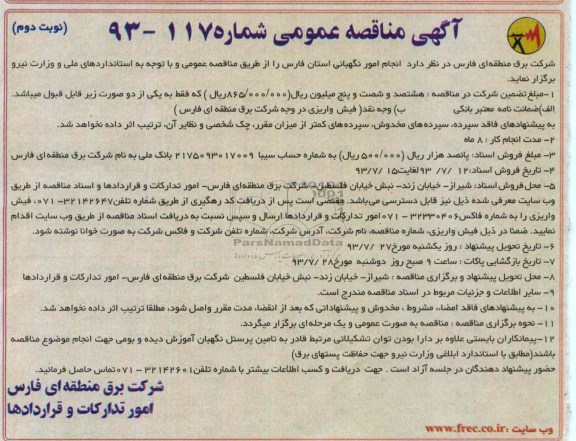 آگهی مناقصه عمومی شماره۱۱۷ -۹۳
(نوبت دوم)
شرکت برق منطقه‌ای فارس در نظر دارد انجام امور نگهبانی استان فارس را از طریق مناقصه عمومی و با توجه به استانداردهای ملی و وزارت نیرو
برگزار نماید.
۱-مبلغ تضمین شرکت در مناقصه : هشتصد و شصت و پنج میلیون ریال(۸۶۵/۰۰۰/۰۰۰ریال ) که فقط به یکی از دو صورت زیر قابل قبول میباشد.
الف)ضمانت نامه معتبر بانکی ب) وجه نقد( فیش واریزی در وجه شرکت برق منطقه ای فارس )
به پیشنهادهای فاقد سپرده، سپرده‌های مخدوش، سپرده‌های کمتر از میزان مقرر، چک شخصی و نظایر آن، ترتیب اثر داده نخواهد شد.
۲- مدت انجام کار : ۸ ماه
۳- مبلغ فروش اسناد: پانصد هزار ریال (۵۰۰/۰۰۰ ریال) به شماره حساب سیبا ۲۱۷۵۰۹۳۰۱۷۰۰۹ بانک ملی به نام شرکت برق منطقه‌ای فارس
۴- تاریخ فروش اسناد:۱۲ /۷/ ۹۳ لغایت۹۳/۷/۱۵
۵- محل‌فروش اسناد: شیراز- خیابان زند- نبش خیابان فلسطین- شرکت برق منطقه‌ای فارس- امور تدارکات و قراردادها و اسناد مناقصه از طریق
وب سایت معرفی شده ذیل نیز قابل دسترسی می‌باشد. مقتضی است پس از دریافت کد رهگیری از طریق شماره تلفن۳۲۱۴۲۶۴۷-۰۷۱، فیش
واریزی را به شماره فاکس۳۲۳۳۰۴۰۶ - ۰۷۱ امور تدارکات و قراردادها ارسال و سپس نسبت به دریافت اسناد مناقصه از طریق وب سایت اقدام
نمایید. ضمنا در ذیل فیش واریزی، شماره مناقصه، نام شرکت، آدرس شرکت، شماره تلفن شرکت و فاکس شرکت به صورت خوانا نوشته شود.
۶- تاریخ تحویل پیشنهاد : روز یکشنبه مورخ۲۷ /۷/ ۹۳
۷- تاریخ بازگشایی پاکات : ساعت ۹ صبح روز دوشنبه مورخ۹۳/۷/۲۸
۸- محل تحویل پیشنهاد و برگزاری مناقصه : شیراز- خیابان زند- نبش خیابان فلسطین شرکت برق منطقه‌ای فارس- امور تدارکات و قراردادها
۹- سایر اطلاعات و جزئیات مربوط در اسناد مناقصه مندرج است.
۱۰- به پیشنهادهای فاقد امضاء، مشروط ، مخدوش و پیشنهاداتی که بعد از انقضاء مدت مقرر واصل شود، مطلقا ترتیب اثر داده نخواهد شد.
۱۱- نحوه برگزاری مناقصه : مناقصه به صورت عمومی و یک مرحله‌ای برگزار میگردد.
۱۲-پیمانکاران بایستی علاوه بر دارا بودن توان تشکیلاتی مرتبط قادر به تامین پرسنل نگهبان آموزش دیده و بومی جهت انجام موضوع مناقصه
باشند(مطابق با استاندارد ابلاغی وزارت نیرو جهت حفاظت پستهای برق)
حضور پیشنهاد دهندگان در جلسه آزاد است . جهت دریافت و کسب اطلاعات بیشتر با شماره تلفن۳۲۱۴۲۶۰۱ - ۰۷۱تماس حاصل فرمائید.
شرکت برق منطقه ای فارس
امور تدارکات و قراردادها
وب سایت :www.frec.co.ir
ParsNamadData